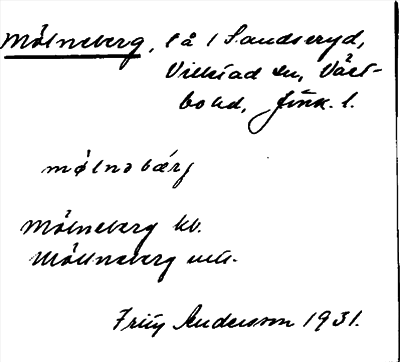 Mölneberg, lå i Sandseryd,
Villstad sn, Väst-
bo hd, Jönk. l.
mølnəbærj
Mölneberg kb.
Möllneberg
Frity Andersson 1931.